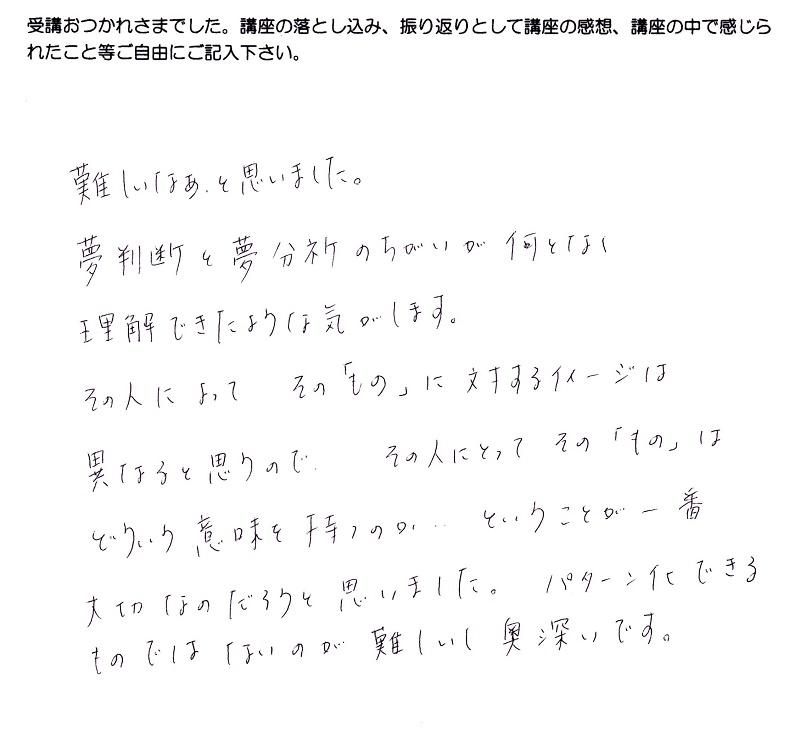 受講おつかれさまでした。講座の落とし込み、振り返りとして講座の感想、講座の中で感じら
れたこと等ご自由にご記入下さい。
難しいなぁ.と思いました。
夢判断と夢分析のちがいが何となく
理解できたような気がします。
その人によって その「もの」に対するイメージは
異なると思うので. その人にとって その「もの」は
どういう意味を持つのか… ということが一番
大切なのだろうと思いました。 パターン化できる
ものではないのが難しいし奥深いです。